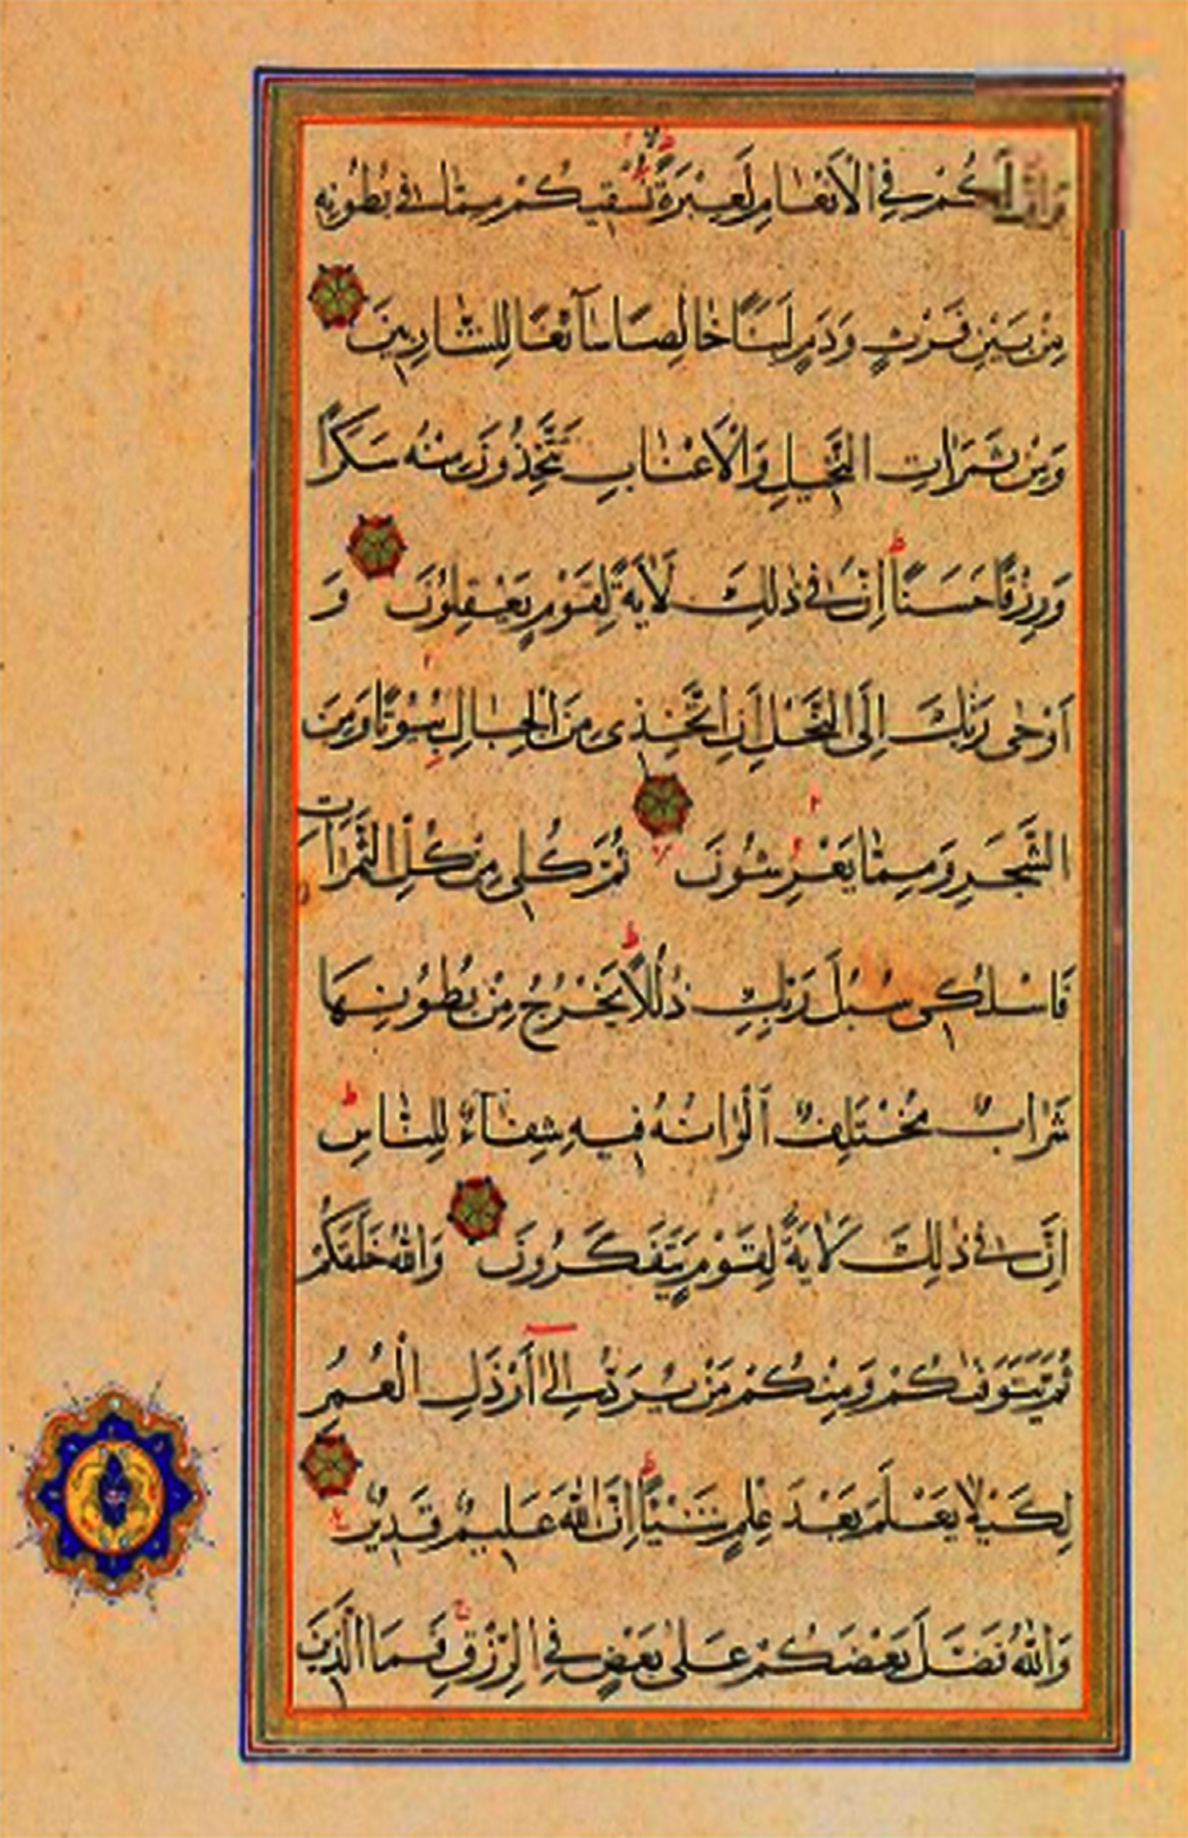 وَإِنَّ لَكُمْ فِي الْأَنْعَامِ لَعِبْرَةً نُسْقِيكُمْ مِمَّا فِي بُطُونِهِ
مِنْ بَيْنِ فَرْثٍ وَدَمٍ لَبَنًا خَالِصًا سَآئِغًا لِلشَّارِبِينَ
وَمِنْ ثَمَرَاتِ النَّخِيلِ وَالْأَعْنَابِ تَتَّخِذُونَ مِنْهُ سَكَرًا
وَرِزْقًا حَسَنًا إِنَّ فِي ذٰلِكَ لَاٰيَةً لِقَوْمٍ يَعْقِلُونَ وَ
اَوْحٰى رَبُّكَ اِلَى النَّحْلِ اَنِ اتَّخِذِى مِنَ الْجِبَالِ بُيُوتًا وَمِنَ
الشَّجَرِ وَمِمَّا يَعْرِشُونَ ثُمَّ كُلِى مِنْ كُلِّ الثَّمَرَاتِ
فَاسْلُكِى سُبُلَ رَبِّكِ ذُلُلًا يَخْرُجُ مِنْ بُطُونِهَا
شَرَابٌ مُخْتَلِفٌ اَلْوَانُهُ فِيهِ شِفَآءٌ لِلنَّاسِ
اِنَّ فِي ذٰلِكَ لَاٰيَةً لِقَوْمٍ يَتَفَكَّرُونَ وَاللّٰهُ خَلَقَكُمْ
ثُمَّ يَتَوَفّٰىكُمْ وَمِنْكُمْ مَنْ يُرَدُّ اِلٰى اَرْذَلِ الْعُمُرِ
لِكَيْلَا يَعْلَمَ بَعْدَ عِلْمٍ شَيْئًا اِنَّ اللّٰهَ عَلِيمٌ قَدِيرٌ
وَاللّٰهُ فَضَّلَ بَعْضَكُمْ عَلٰى بَعْضٍ فِي الرِّزْقِ فَمَا الَّذِينَ